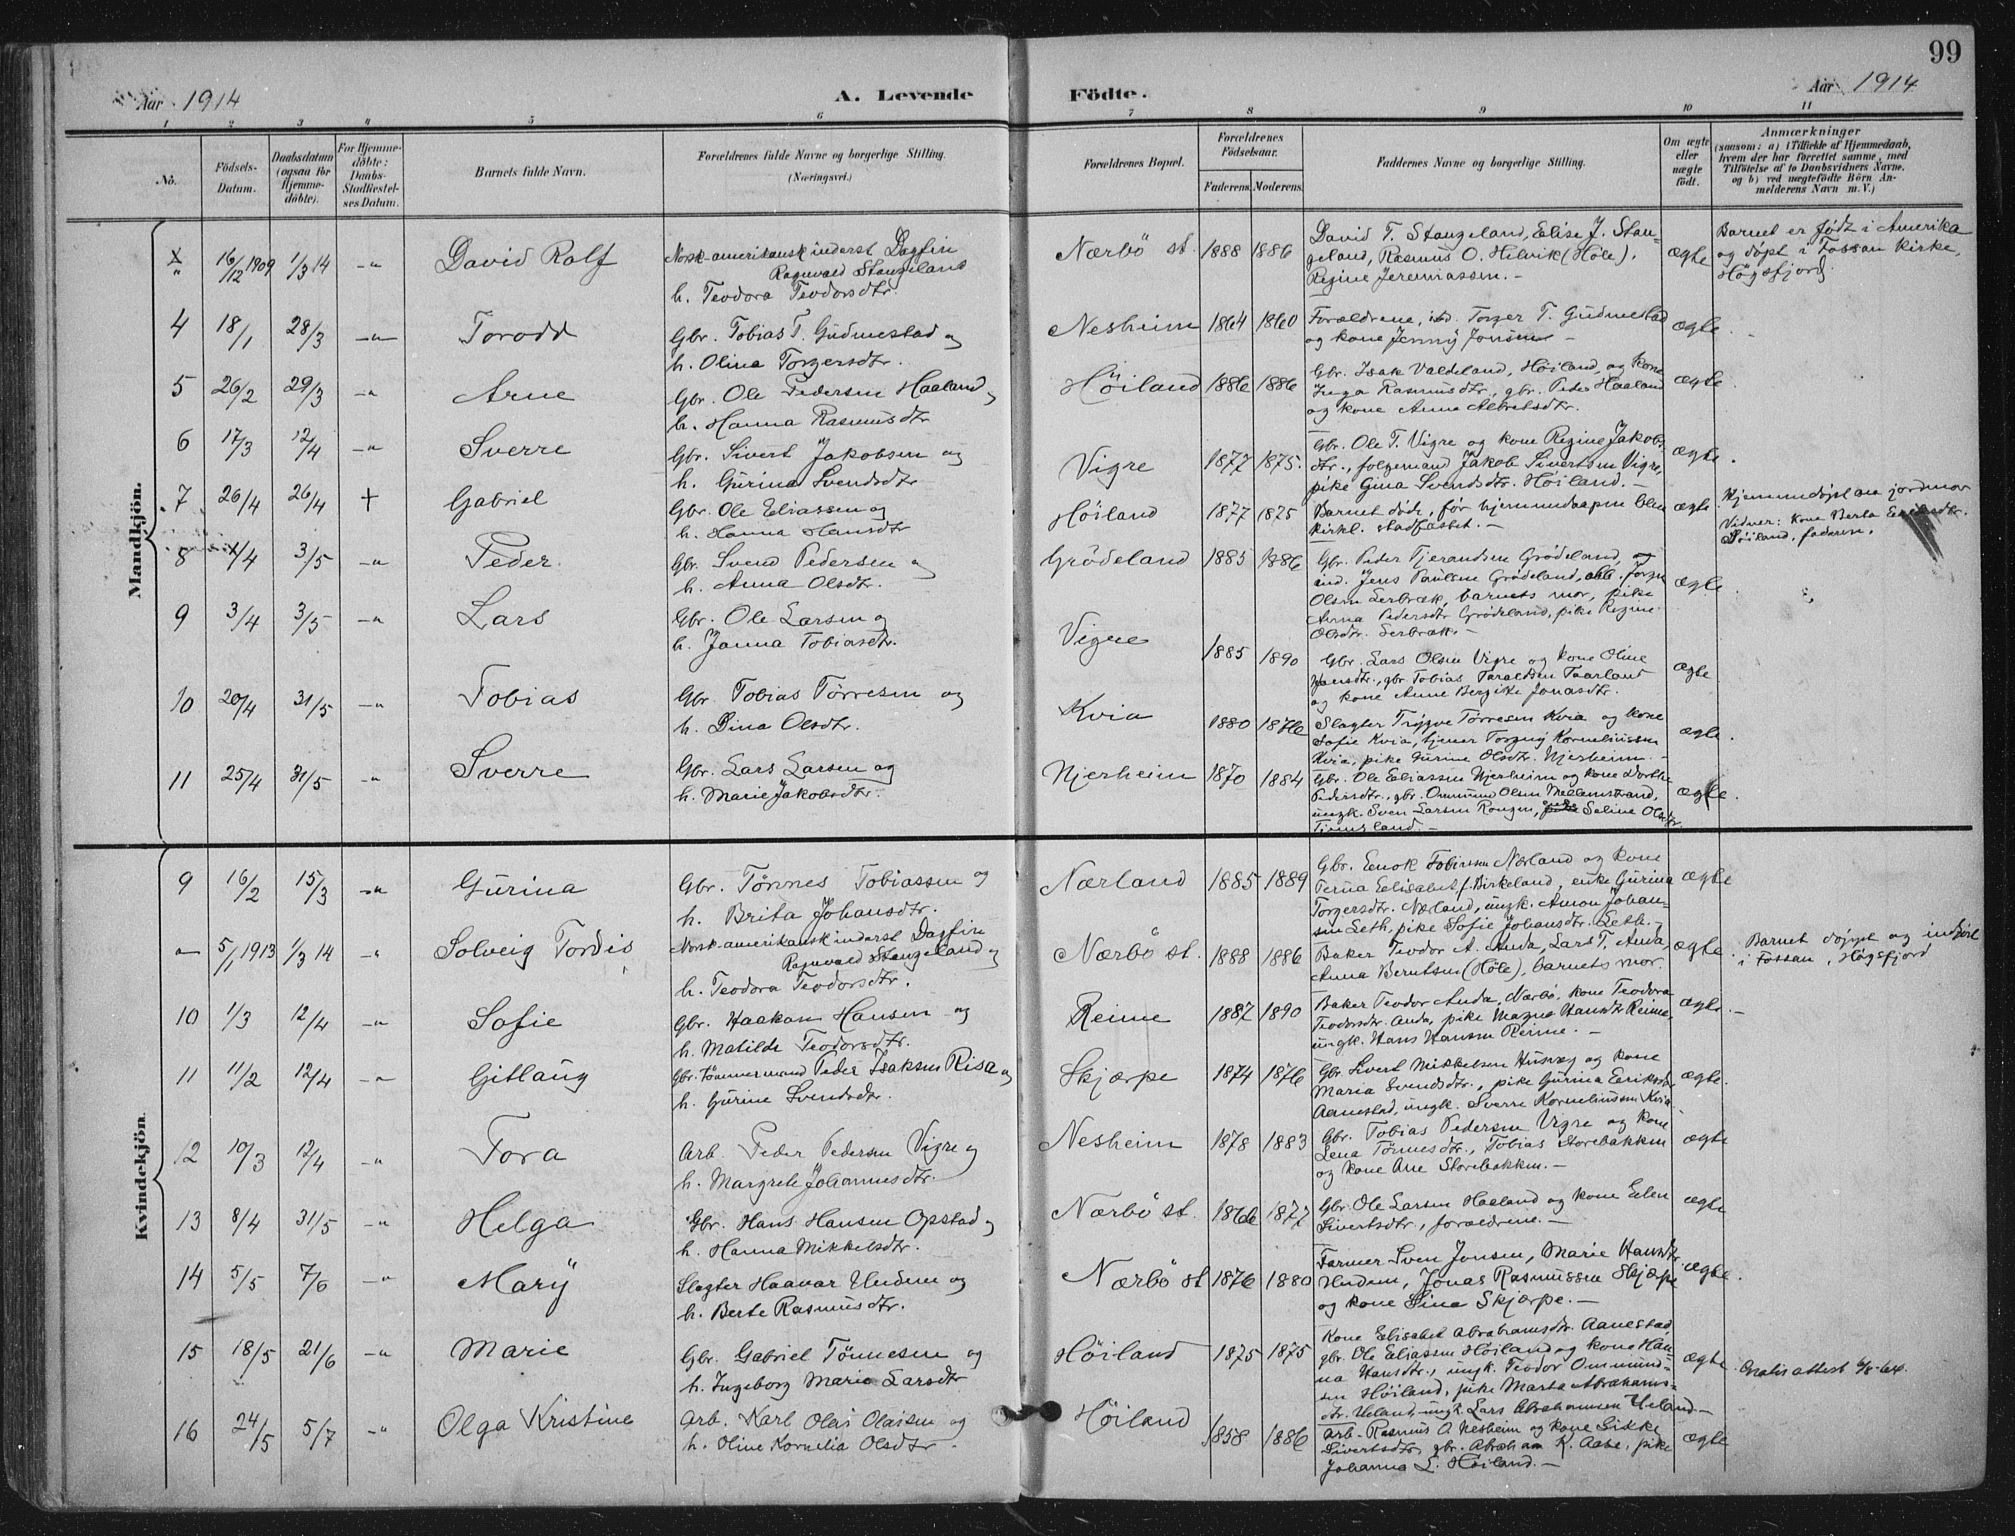 99
Aar 1914
A. Levende
Födte.
Aar 1914
1 2 3 4 5 6 7 8 9 10 11
No.
Födsels-
Datum.
Daabsdatum
(ogsaa for
Hjemme-
döbte).
For Hjemme-
döbte:
Daabs-
Stadfæstel-
ses Datum.
Barnets fulde Navn.
Forældrenes fulde Navne og borgerlige Stilling.
(Næringsvei.)
Forældrenes Bopæl.
Forældrenes
Födselsaar.
Faderens. Moderens.
Faddernes Navne og borgerlige Stilling.
Om ægte
eller
uægte
födt.
Anmærkninger
(saasom: a) i Tilfælde af Hjemmedaab,
hvem der har forrettet samme, med
Tilföielse af to Daabsvidners Navne.
og b) ved uægtefödte Börn An-
melderens Navn m. V.)
Mandkjön.
16/12 1909 1/3 14 -"- David Rolf
Norsk-amerikansk inderst Dagfin
Ragnvald Stangeland
h. Teodora Teodorsdtr.
Nærbö st. 1888 1886
David T. Stangeland, Elise J. Stan-
geland, Rasmus O. Helvik (Höle),
Regine Jeremiassen. -
ægte
Barnet er född i Amerika
og döpt i Fossan kirke,
Högsfjord.
4 18/1 28/3 -"- Torodd
Gbr. Tobias T. Gudmestad og
h. Olina Torgersdtr.
Nesheim 1864 1860
Forældrene, Torger T. Gudmestad
og kone Jenny Jonsen -
ægte
5 26/2 29/3 -"- Arne
Gbr. Ole Pedersen Haaland og
h. Hanna Rasmusdtr
Höiland 1886 1886
Gbr. Isak Valdeland, Höiland, og kone
Inga Rasmusdtr, gbr. Peder Haaland
og kone Anna Albretsdtr.
ægte
6 17/3 12/4 -"- Sverre
Gbr. Sivert Jakobsen og
h. Gurina Svendsdtr
Vigre 1877 1875.
Gbr. Ole T. Vigre og kone Regine Jakobs-
dtr., folgemand Jakob Sivertsen Vigre,
pike Gina Svendsdtr. Höiland. -
ægte.
7 26/4 26/4 + Gabriel
Gbr. Ole Eliassen og
h. Hanna Hansdtr
Höiland 1877 1875
Barnet döde, før hjemmedaapen blev
kirkl. stadfæstet. -
ægte
Hjemmedöpt av jordmor
Vidner: kone Berta Eriksdtr.
Höiland, faderen.
8 4/4 3/5 -"- Peder
Gbr. Svend Pedersen og
h. Anna Olsdtr.
Grödeland 1885 1886
Gbr. Peder Tjerandsen Grödeland, og
Jens Paulsen Grödeland, Torger
Olsen Serbræk, barnets mor, pike
Anna Pedersdtr Grödeland, pike Regine
Olsdtr. Serbræk. -
ægte
9 3/4 3/5 -"- Lars
Gbr. Ole Larsen og
h. Janna Tobiasdtr.
Vigre 1885 1890
Gbr. Lars Olsen Vigre og kone Oline
Hansdtr., gbr Tobias Taraldsen Taarland
og kone Anne Bergite Jonasdtr.
ægte
10 20/4 31/5 -"- Tobias
Gbr. Tobias Törresen og
h. Dina Olsdtr.
Kvia 1880 1876
Slagter Trygve Törresen Kvia og kone
Sofie Kvia, tjener Torger Korneliussen
Kvia, pike Gurine Olsdtr. Njerheim. -
ægte.
11 25/4 31/5 -"- Sverre
Gbr. Lars Larsen og
h. Marie Jakobsdtr.
Njerheim 1870 1884
Gbr. Ole Eliassen Njerheim og kone Dorthe
Pedersdtr., gbr. Ommund Olsen Mellemstrand,
ungk. Sven Larsen Rongen, pike Seline Olsdtr.
Tinnesland. -
ægte.
Kvindekjön
9 16/2 15/3 -"- Gurina
Gbr. Tönnes Tobiassen og
h. Brita Johansdtr.
Nærland 1885 1889
Gbr. Enok Tobiassen Nærland og kone
Terna Elisabet f. Birkeland, enke Gurina
Torgersdtr. Nærland, ungk. Amon Johan-
sen Leth, pike Sofie Johansdtr. Leth. -
ægte
-"- 5/1 1913 1/3 14 -"- Solveig Tordis
Norsk-amerikansk inderst Dagfin
Ragnvald Stangeland og
h. Teodora Teodorsdtr.
Nærbö st. 1888 1886
Baker Teodor A. Anda, Lars T. Anda,
Anna Berntsen (Höle), barnets mor.
ægte
Barnet döpt og indfört
i Fossan, Högsfjord
10 1/3 12/4 -"- Sofie
Gbr. Haakon Hansen og
h. Matilde Teodorsdtr.
Reime 1887 1890
Baker Teodor Anda, Nærbö, kone Teodora
Teodorsdtr. Anda, pike Magna Hansdtr Reime,
ungk. Hans Hansen Reime. -
ægte
11 11/2 12/4 -"- Gitlaug
Gbr. tömmermand Peder Isaksen Risa og
h. Gurine Svendsdtr.
Skjærpe 1874 1876
Gbr. Sivert Mikkelsen Husvæg og kone
Maria Svendsdtr., pike Gurina Eriksdtr
Aanestad, ungk. Sverre Korneliussen Kvia.
ægte
12 10/3 12/4 -"- Tora
Arb. Peder Pedersen Vigre og
h. Margrete Johannesdtr.
Nesheim 1878 1883
Gbr. Tobias Pedersen Vigre og kone
Lena Tönnesdtr., Tobias Storebakken
og kone Ane Storebakken. -
ægte
13 8/4 31/5 -"- Helga
Gbr. Hans Hansen Opstad og
h. Hanna Mikkelsdtr.
Nærbö st. 1866 1877
Gbr. Ole Larsen Haaland og kone Elen
Sivertsdtr., forældrene. -
ægte
14 5/5 7/6 -"- Mary
Slagter Haavar Undem og
h. Berte Rasmusdtr.
Nærbö st. 1876 1880
Farmer Sven Jonsen, Marie Hansdtr
Undem, Jonas Rasmussen Skjærpe
og kone Sina Skjærpe. -
ægte.
15 18/5 21/6 -"- Marie
Gbr. Gabriel Tönnesen og
h. Ingeborg Marie Larsdtr
Höiland 1875 1875
Kone Elisabet Abrahamsdtr. Aanestad,
gbr. Ole Eliassen Höiland og kone Han-
na Hansdtr., ungk. Teodor Ommund-
sen Höiland, pike Marta Abrahams-
dtr. Ueland, ungk. Lars Abrahamsen Ueland -
ægte
Gratis attest 6/8-64
16 24/5 5/7 -"- Olga Kristine
Arb. Karl Olai Olaisen og
h. Oline Kornelia Olsdtr.
Höiland 1858 1886
Arb. Rasmus A Nesheim og kone Sikke
Sivertsdtr., gbr. Abraham K. Aase, pike
Johanna L. Höiland. -
ægte